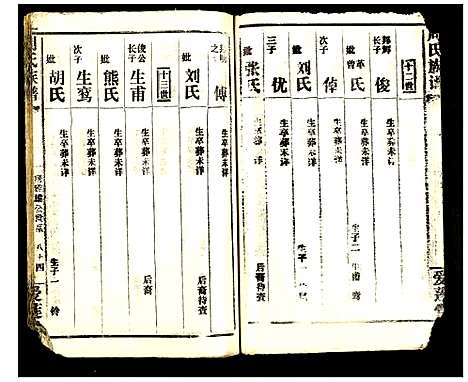 周氏族谱
十二世
长子 俊 生卒葬未详
妣 曾 氏 生卒葬未详 生子二 生甫 鸾
次子 倬 生卒葬未详
妣 刘氏 生卒葬未详 生子一
三子 优 生卒葬未详
妣 张氏 生卒葬未详 后裔待查
之子 傅 生卒葬未详
妣 刘氏 生卒葬未详 后裔待查
十三世
俊公长子 生甫 生卒葬未详 后裔
妣 熊氏 生卒葬未详
次子 生鸾 生卒葬未详
妣 胡氏 生卒葬未详 生子一
氏族谱
八十四
爱莲堂